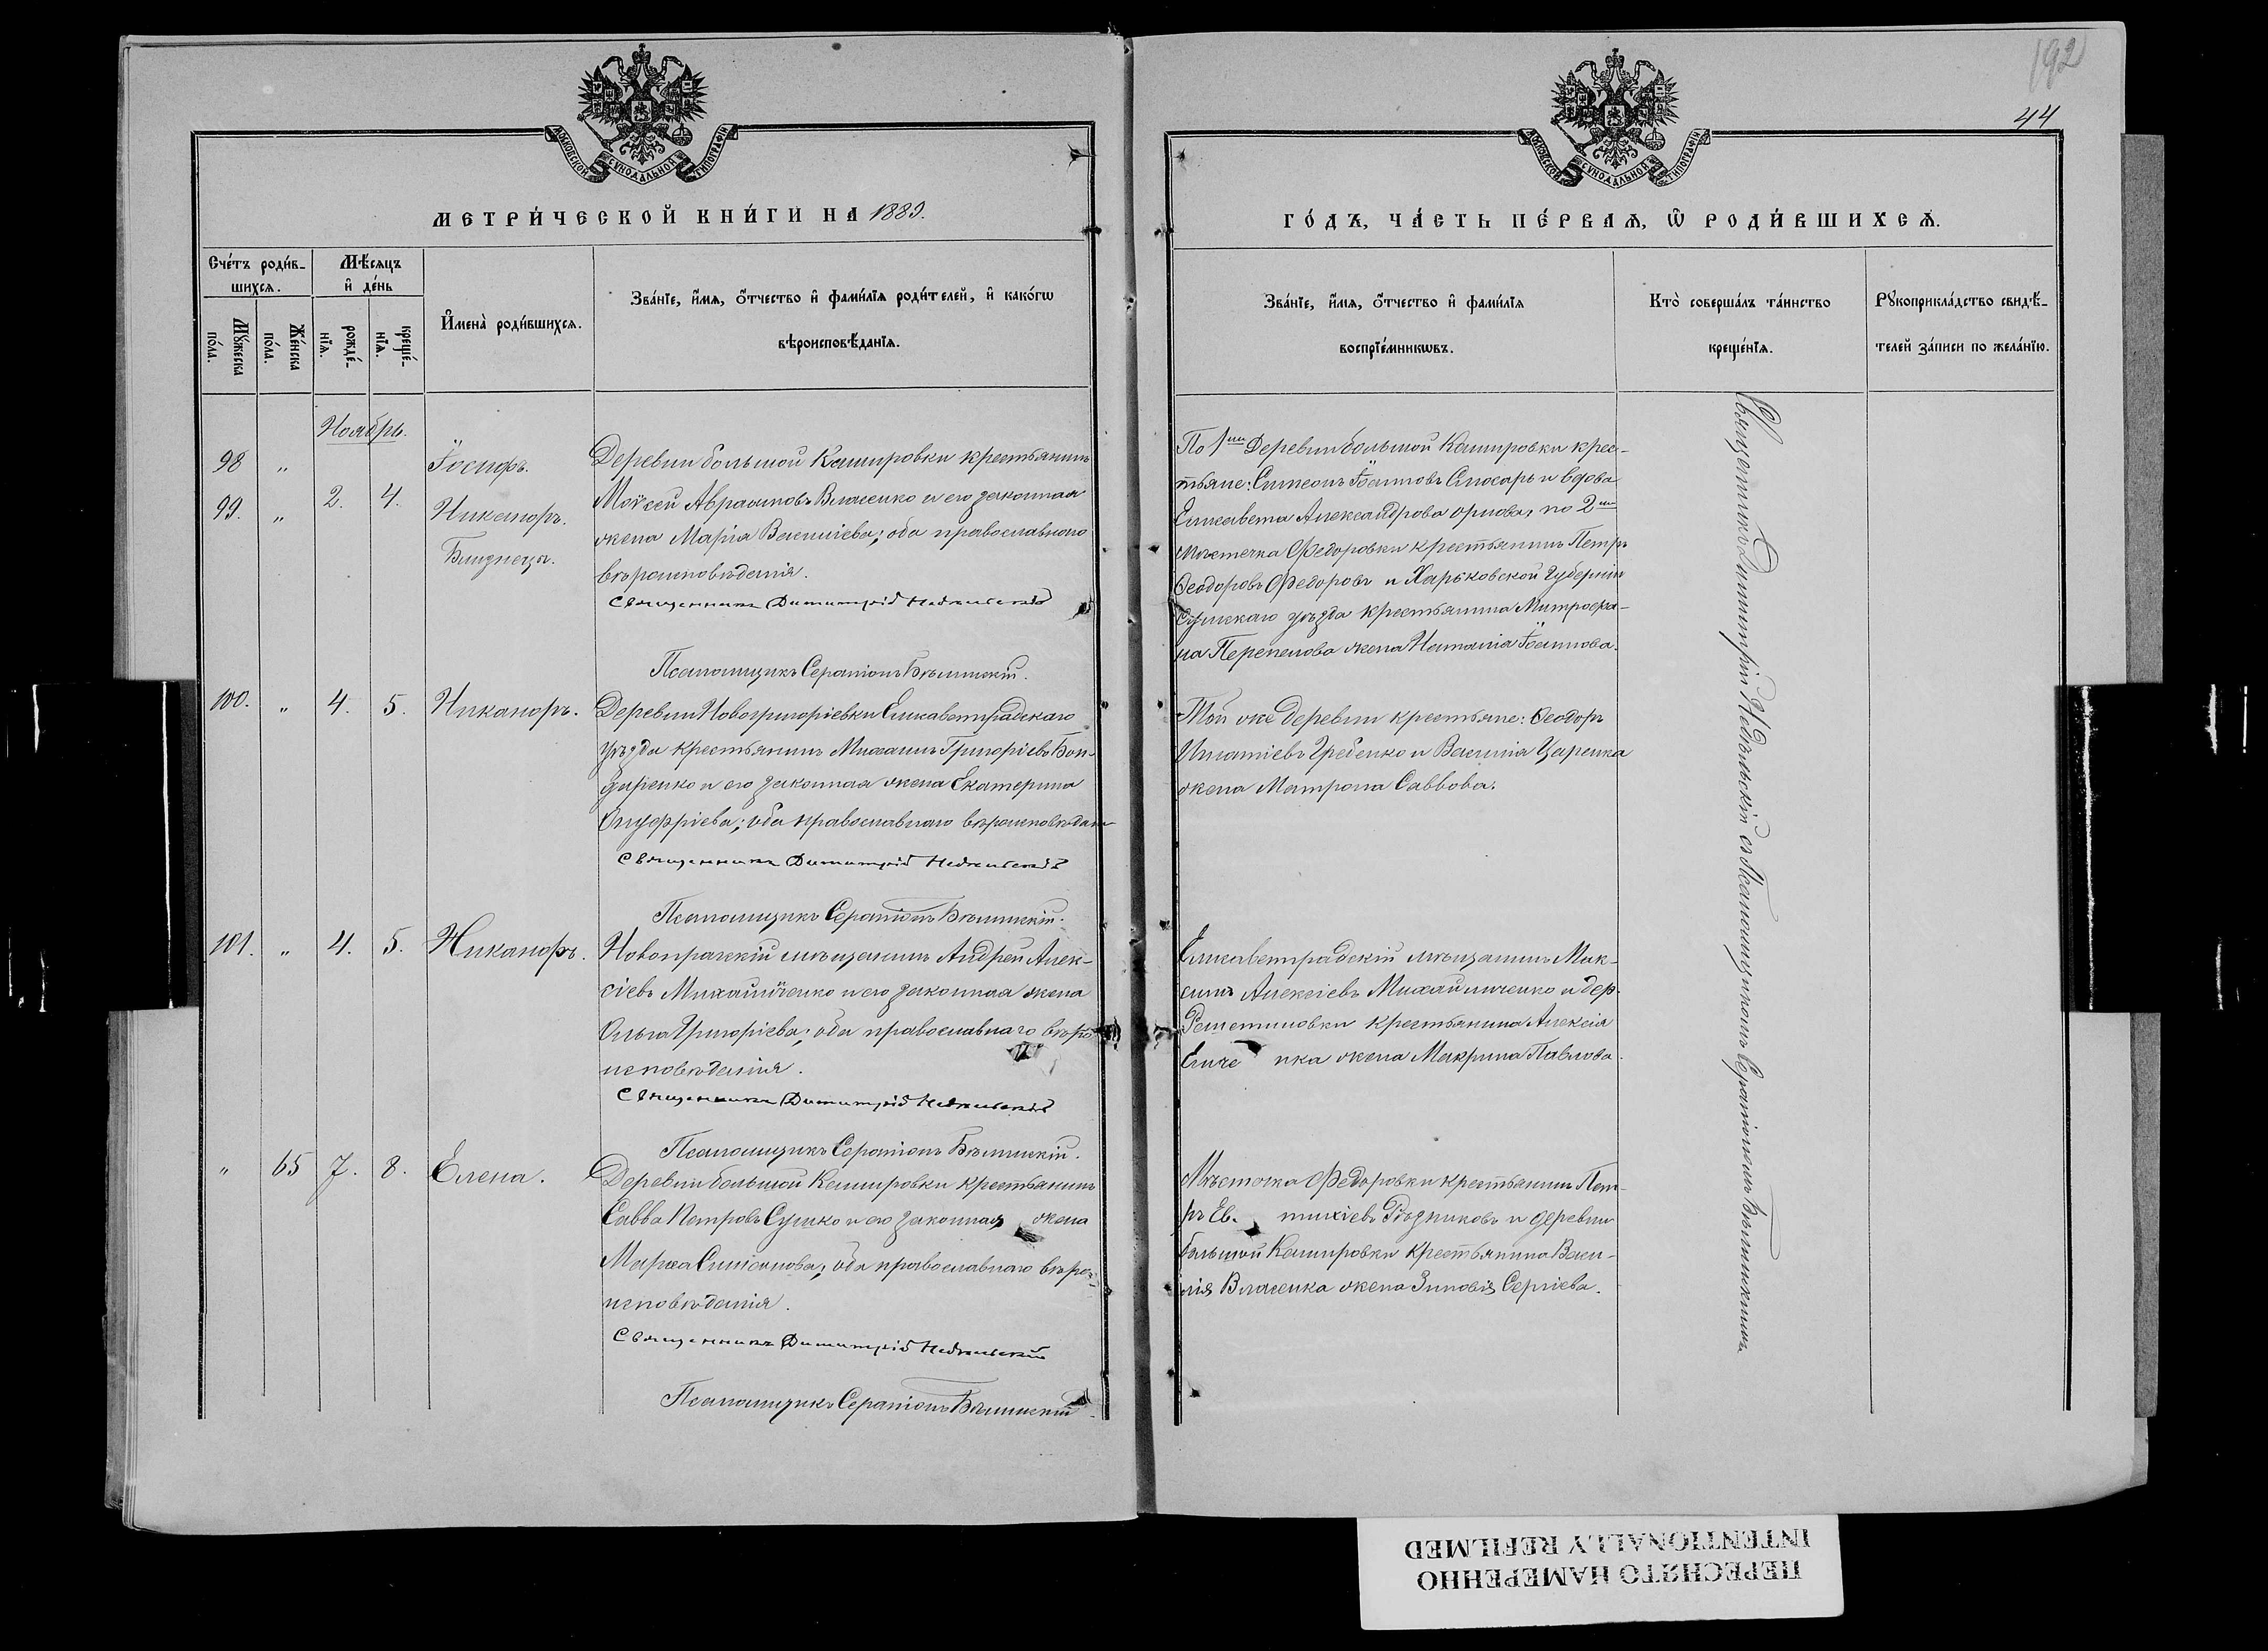 192
44
МОСКОВСКОЙ СУНОДАЛЬНОЙ ТИПОГРАФІИ
МОСКОВСКОЙ СУНОДАЛЬНОЙ ТИПОГРАФІИ
МЕТРИ́ЧЕСКОЙ КНИ́ГИ НА 1889.
ГО́ДЪ, ЧА́СТЬ ПЕ́РВАѦ, Ѿ РОДИ́ВШИХСѦ.
Сче́тъ роди́в-
шихсѧ.
Мꙋ́жеска
по́ла.
Же́нска
по́ла.
Мѣ́сяцъ
и҆ де́нь
рожде́-
нїѧ.
креще́-
нїѧ.
И҆мена̀ роди́вшихсѧ.
Зва́нїе, и҆́мѧ, ѻ҆́тчество и҆ фами́лїѧ роди́телей, и҆ како́гѡ
вѣроисповѣ́данїѧ.
Зва́нїе, и҆́мѧ, ѻ҆́тчество и҆ фами́лїѧ
воспрїе́мникѡвъ.
Кто̀ соверша́лъ та́инство
креще́нїѧ.
Рꙋкоприкла́дство свидѣ́-
телей за́писи по жела́нїю.
Ноябрь.
98 „ Іосифъ.
99. „ 2. 4. Никаноръ.
Близнецы.
Деревни большой Камировки крестьянинъ
Моѵсей Авраамовъ Власенко и его законная
жена Марія Василіева; оба православнаго
вѣроисповѣданія.
Священникъ Димитрій
Псаломщикъ Серапіонъ Бѣлинскій.
По 1му Деревни большой Камировки крес-
тьяне: Симеонъ Іоанновъ Слюсарь и вдова
Елисавета Александрова Орлова, по 2му
мѣстечка Федоровки крестьянинъ Петръ
Ѳеодоровъ Федоровъ и Харьковской Губерніи
Сумскаго уѣзда крестьянина Митрофа-
на Перепелова жена Наталія Іоаннова.
100. „ 4. 5. Никаноръ.
Деревни Новогригоріевки Елисаветградскаго
уѣзда крестьянинъ Михаилъ Григоріевъ Бон-
даренко и его законная жена Екатерина
Онуфріева; оба православнаго вѣроисповѣдан
Священникъ Димитрій
Псаломщикъ Серапіонъ Бѣлинскій.
Той же деревни крестьяне: Ѳеодоръ
Игнатіевъ Гребенко и Василія Царенка
жена Матрона Саввова.
101. „ 4. 5. Никаноръ.
Новопражскій мѣщанинъ Андрей Алек-
сіевъ Михайличенко и его законная жена
Ольга Григоріева; оба православнаго вѣро-
исповѣданія.
Священникъ Димитрій
Псаломщикъ Серапіонъ Бѣлинскій.
Елисаветградскій мѣщанинъ Мак-
симъ Алексіевъ Михайличенко и дер.
Решетиловки крестьянина Алексія
жена Макрина Павлова.
„ 65 7. 8. Елена.
Деревни большой Камировки крестьянинъ
Савва Петровъ Сушко и его законная жена
Марѳа Симеонова; оба православнаго вѣро-
исповѣданія.
Священникъ Димитрій
Псаломщикъ Серапіонъ Бѣлинскій
Мѣстечка Федоровки крестьянинъ Пет-
ръ Ев тихіевъ Рѣзниковъ и деревни
большой Камировки крестьянина Васи-
лія Власенка жена Зиновія Сергіева.
Священникъ Димитрій съ Псаломщикомъ Серапіономъ Бѣлинскимъ
ПЕРЕСНЯТО НАМЕРЕННО
INTENTIONALLY REFILMED